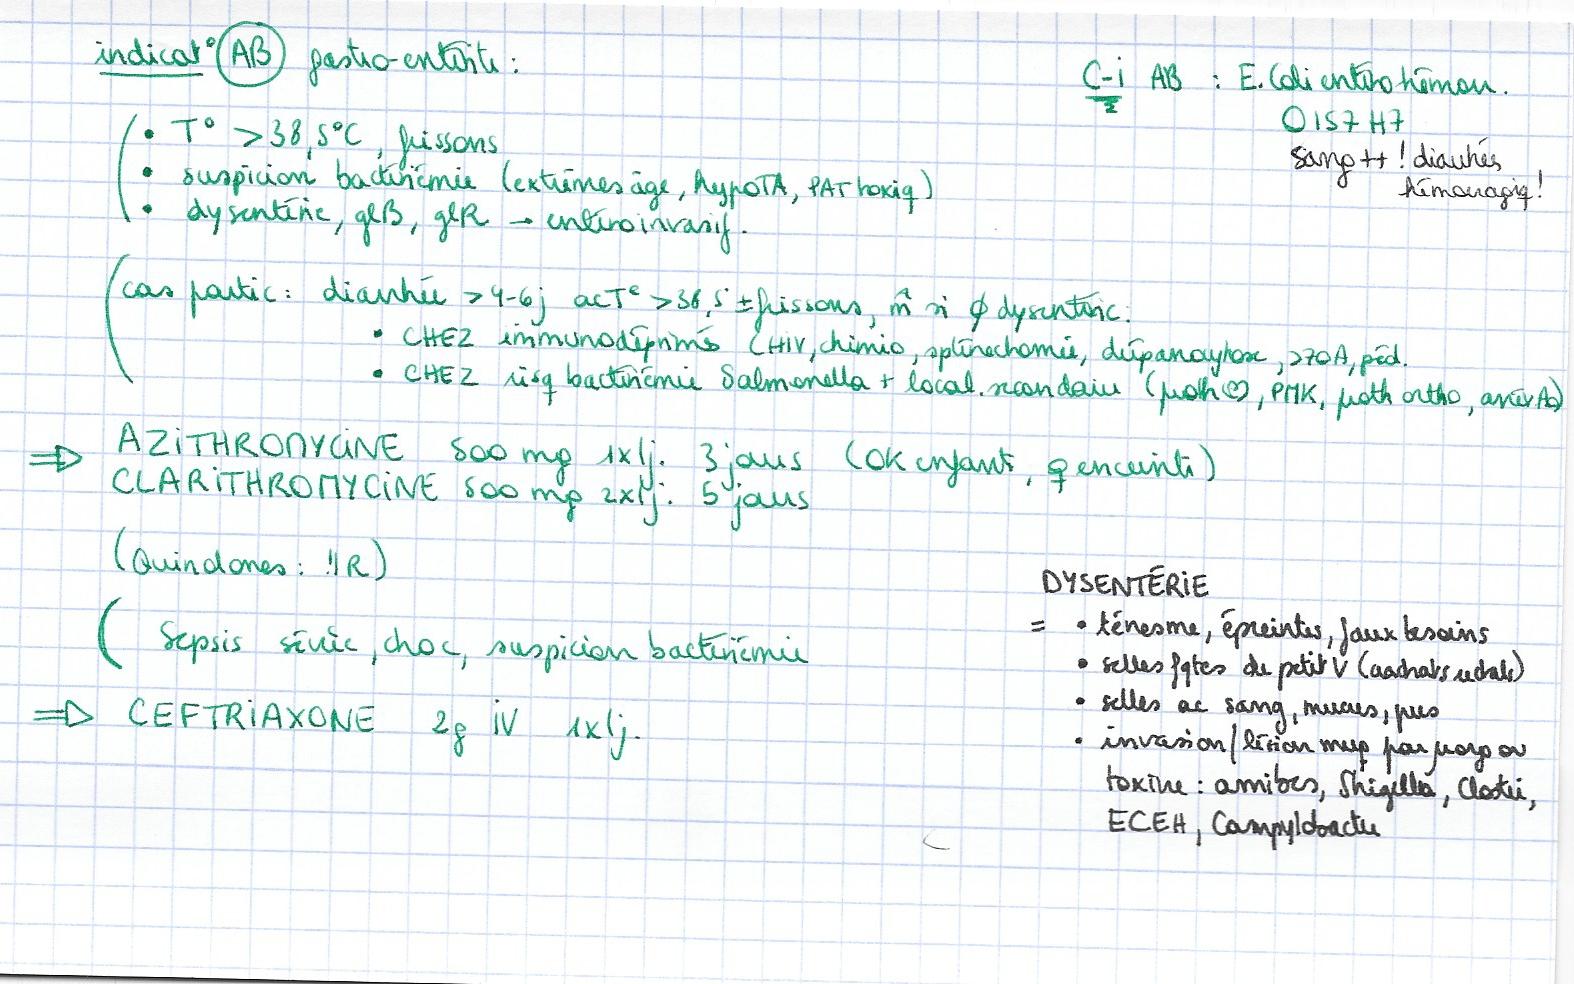 indicat° AB gastro-entérite :
• T° > 38,5°C, frissons
• suspicion bactériémie (extrêmes âge, hypoTA, PAT toxiq)
• dysenterie, glB, glR → entéroinvasif.
C-i AB : E. Coli entérohémorr.
O157 H7
sang ++ ! diarrhées
hémorragiq !
cas partic : diarrhée > 4-6j ac T° > 38,5 ± frissons, m̂ si ∅ dysenterie :
• CHEZ immunodéprimés (HIV, chimio, splénectomie, drépanocytose, >70A, péd.
• CHEZ risq bactériémie Salmonella + local. secondaire (path ♡, PMK, path ortho, anévr Ao)
⇒ AZITHROMYCINE 500 mg 1x/j. 3 jours (OK enfants, ♀ enceinte)
CLARITHROMYCINE 500 mg 2x/j. 5 jours
(Quinolones : !!R)
( Sepsis sévère, choc, suspicion bactériémie
⇒ CEFTRIAXONE 2g iV 1x/j.
DYSENTÉRIE
= • ténesme, épreintes, faux besoins
• selles fqtes de petit V (crachats rectals)
• selles ac sang, mucus, pus
• invasion/lésion muq par µorg ou
toxine : amibes, Shigella, Clostri,
ECEH, Campylobacter